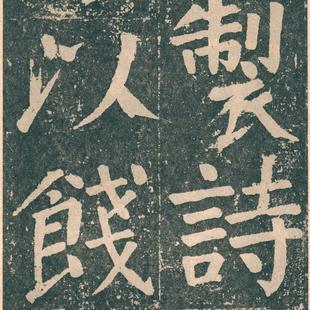 製詩
以餞